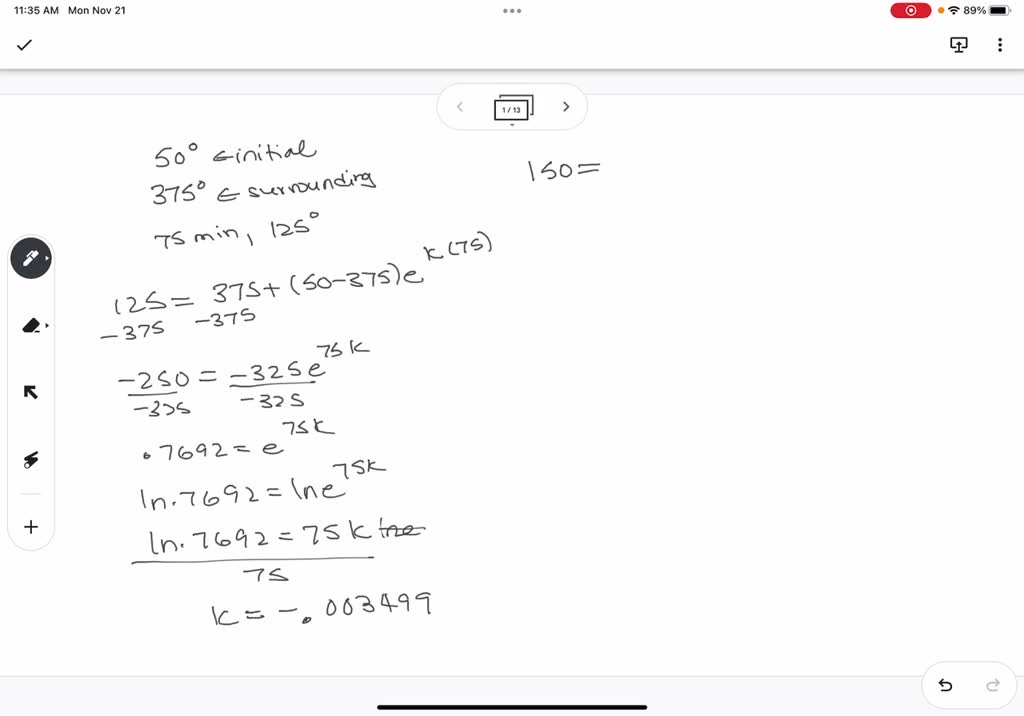 11:35 AM Mon Nov 21
89%
1 / 13
50° ← initial
375° ← surrounding
75 min, 125°
125 = 375 + (50-375)e^k(75)
-375 -375
-250 = -325e^75k
-325 -325
.7692 = e^75k
ln .7692 = ln e^75k
ln .7692 = 75k ln e
75
k = -.003499
150 =